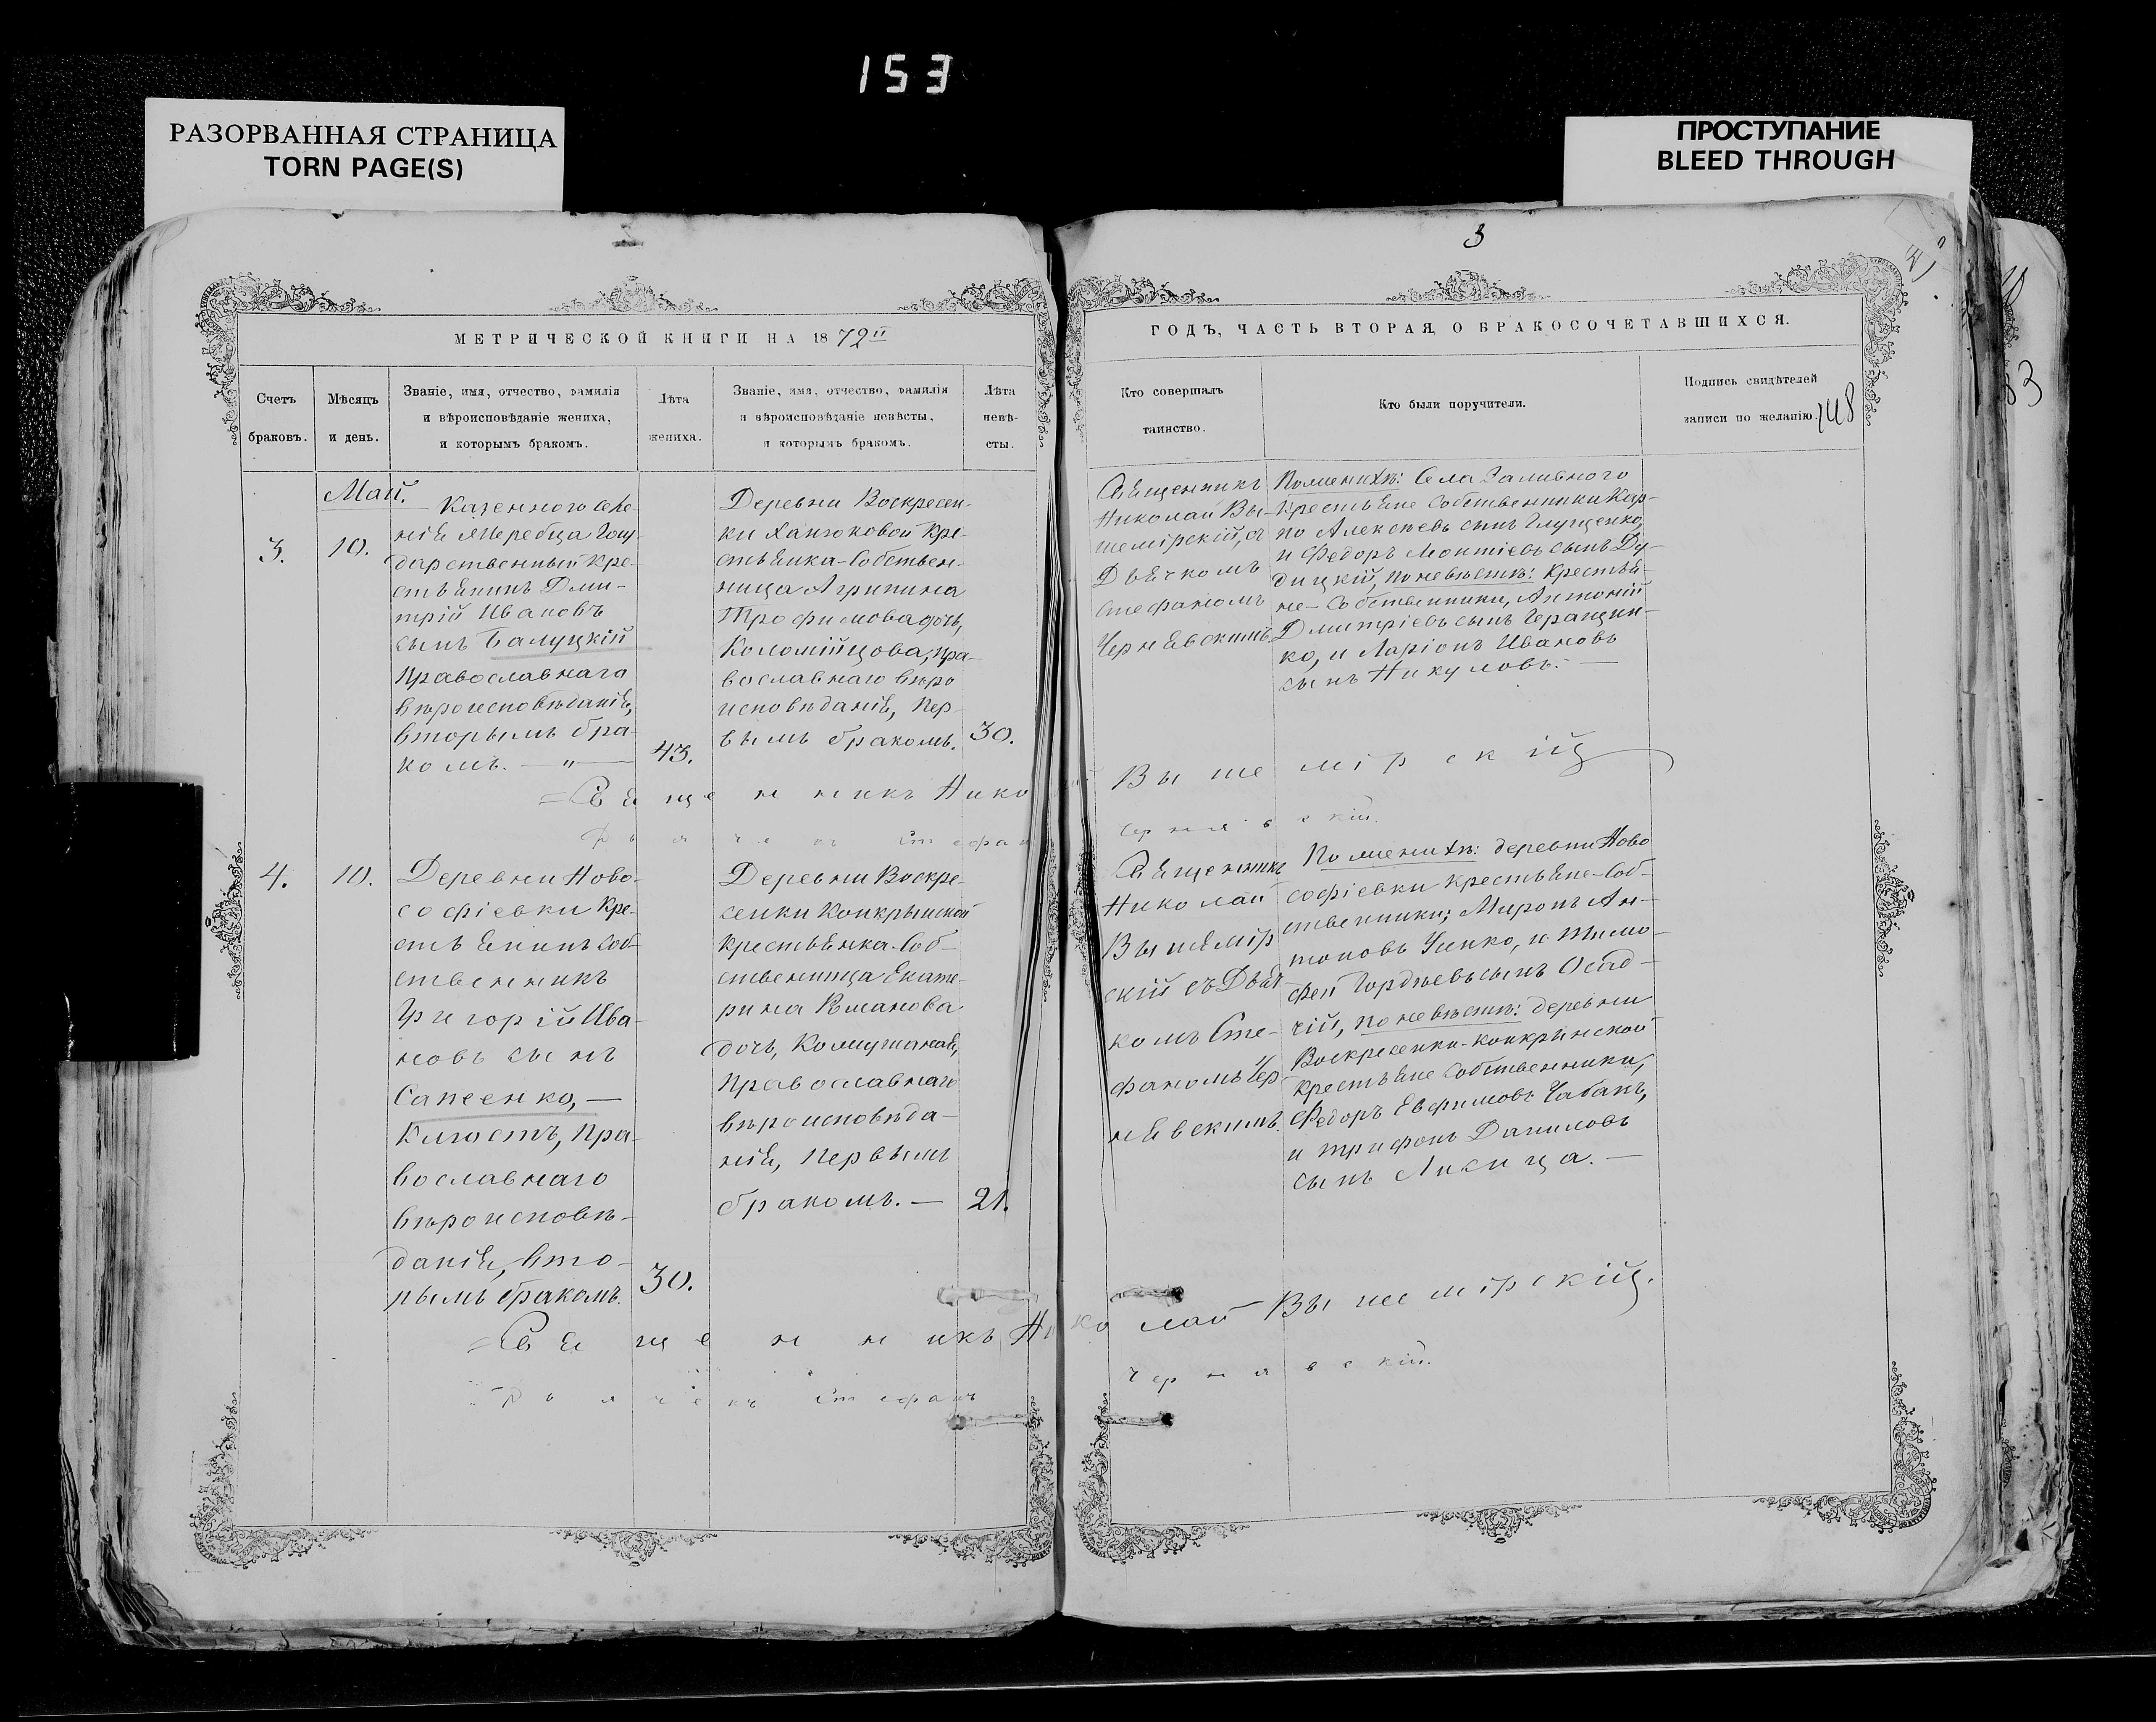 153
РАЗОРВАННАЯ СТРАНИЦА
TORN PAGE(S)
ПРОСТУПАНИЕ
BLEED THROUGH
МЕТРИЧЕСКОЙ КНИГИ НА 1872й
Счетъ браковъ.
Мѣсяцъ и день.
Званіе, имя, отчество, фамилія
и вѣроисповѣданіе жениха,
и которымъ бракомъ.
Лѣта жениха.
Званіе, имя, отчество, фамилія
и вѣроисповѣданіе невѣсты,
и которымъ бракомъ.
Лѣта невѣ-
сты.
Май.
3.
10.
Казеннаго селе-
нія Жеребца Госу
дарственный Кре-
стьянинъ Дми-
трій Ивановъ
сынъ Балуцкій
Православнаго
вѣроисповѣданія,
вторымъ бра-
комъ. — " —
43.
Деревни Воскресен-
ки Ханюковой Кре-
стьянка-Собствен-
ница Агрипина
Трофимова дочь,
Коломійцова, пра-
вославнаго вѣро
исповѣданія, пер-
вымъ бракомъ.
30.
=Священникъ Нико
Дьячекъ Стефан
4.
10.
Деревни Ново-
софіевки Кре-
стьянинъ соб-
ственникъ
Григорій Ива-
новъ сынъ
Сапсенко, —
Православнаго
вѣроисповѣ-
данія, вто-
рымъ бракомъ.
30.
Деревни Воскре-
сенки Конкрынской
крестьянка-Соб-
ственница Екате-
рина Романова
дочь,
Православнаго
вѣроисповѣда-
нія, первымъ
бракомъ. —
21.
=Священникъ Ни
Дьячекъ Стефанъ
3
ГОДЪ, ЧАСТЬ ВТОРАЯ, О БРАКОСОЧЕТАВШИХСЯ.
Кто совершалъ
таинство.
Кто были поручители.
Подпись свидѣтелей
записи по желанію.
148
83
Священникъ
Николай Вы-
шемірскій, съ
Дьячкомъ
Стефаномъ
Чернявскимъ
По женихѣ: Села Заливного
Крестьяне Собственники Кар-
по Алексѣевъ сынъ Глущенко,
и Федоръ Моктіевъ сынъ Ду-
дицкій, по невѣстѣ: Крестья-
не-Собственники, Антоній
Дмитріевъ сынъ Геращен-
ко, и Ларіонъ Ивановъ
сынъ Никуловъ. —
Вышемірскій
Чернявскій.
Священникъ
Николай
Вышемір
скій съ Дьяч
комъ Сте-
фаномъ Чер
нявскимъ.
По женихѣ: деревни Ново
софіевки крестьяне-Соб-
ственники; Миронъ Ан-
тоновъ Усенко, и Тимо-
фей Гордѣевъ сынъ Осад-
чій, по невѣстѣ: деревни
Воскресенки-Конкринской
крестьяне Собственники,
Федоръ Евфимовъ Чабанъ,
и Трифонъ Даниловъ
сынъ Лисица. —
колай Вышемірскій.
Чернявскій.